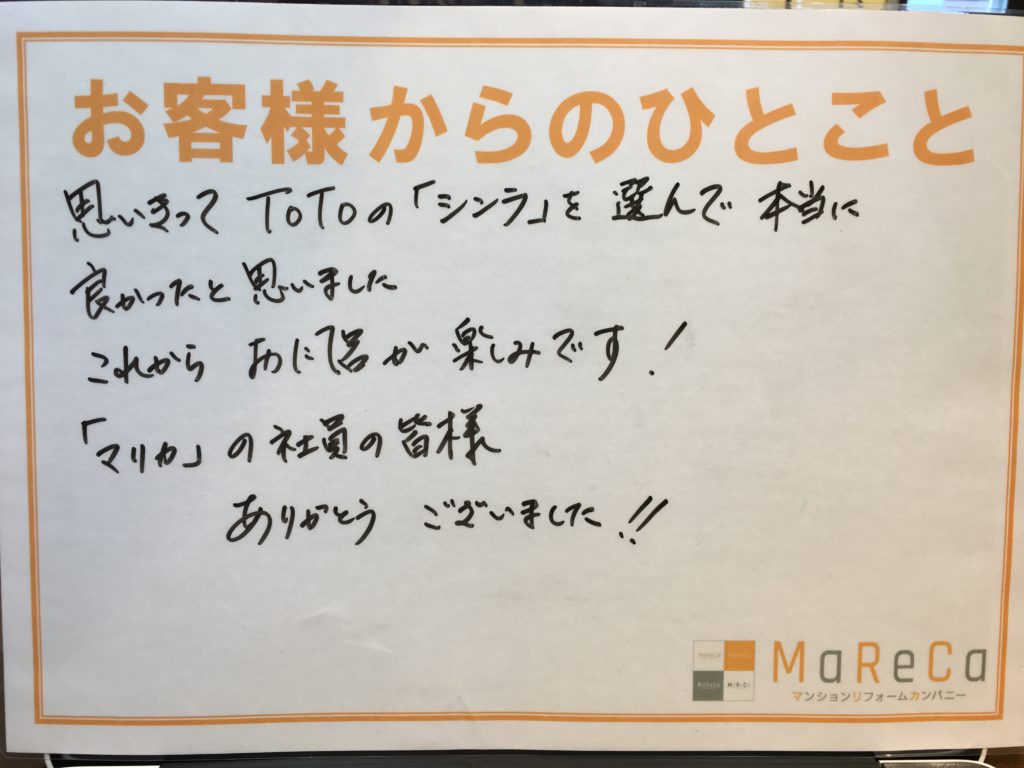 お客様からのひとこと
思いきって TOTOの「シンラ」を 選んで 本当に
良かったと 思いました
これから おに侶が 楽しみです!
「マリカ」の社員の皆様
ありがとう ございました!!
MaReCa
マンションリフォームカンパニー